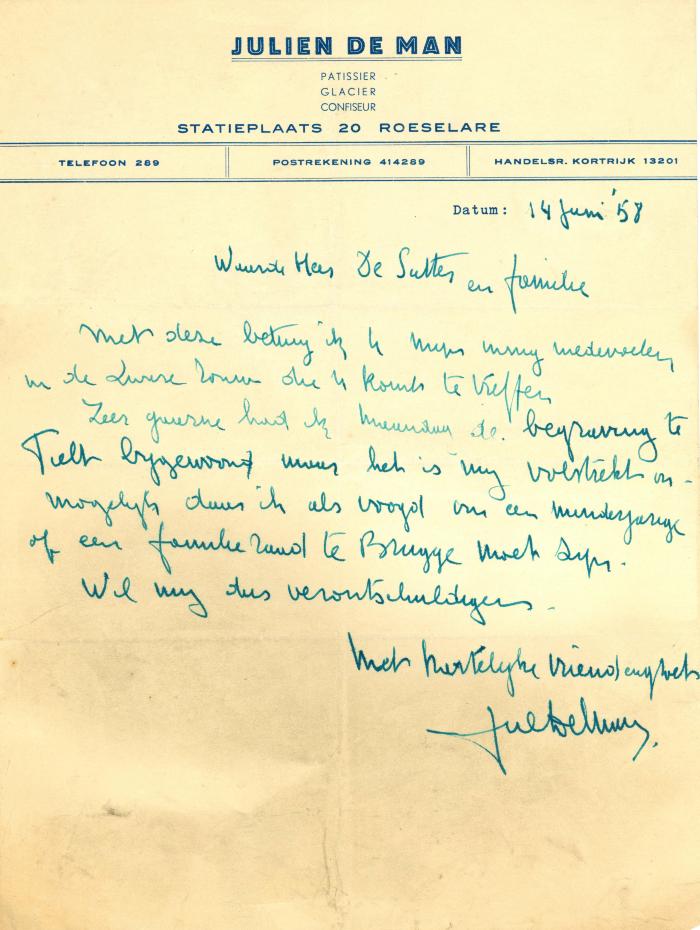 JULIEN DE MAN
PATISSIER
GLACIER
CONFISEUR
STATIEPLAATS 20 ROESELARE
TELEFOON 289 POSTREKENING 414289 HANDELSR. KORTRIJK 13201
Datum: 14 Juni '58
Waarde Heer De Sutter en familie
Met deze betuig ik U mijn innig medevoelen
in de zware rouw die U komt te treffen
Zeer gaarne had ik maandag de begraving te
Tielt bijgewoond maar het is mij volstrekt on-
mogelijk daar ik als voogd van een minderjarige
op een familieraad te Brugge moet zijn.
Wil mij dus verontschuldigen.
Met hartelijke vriendengroet